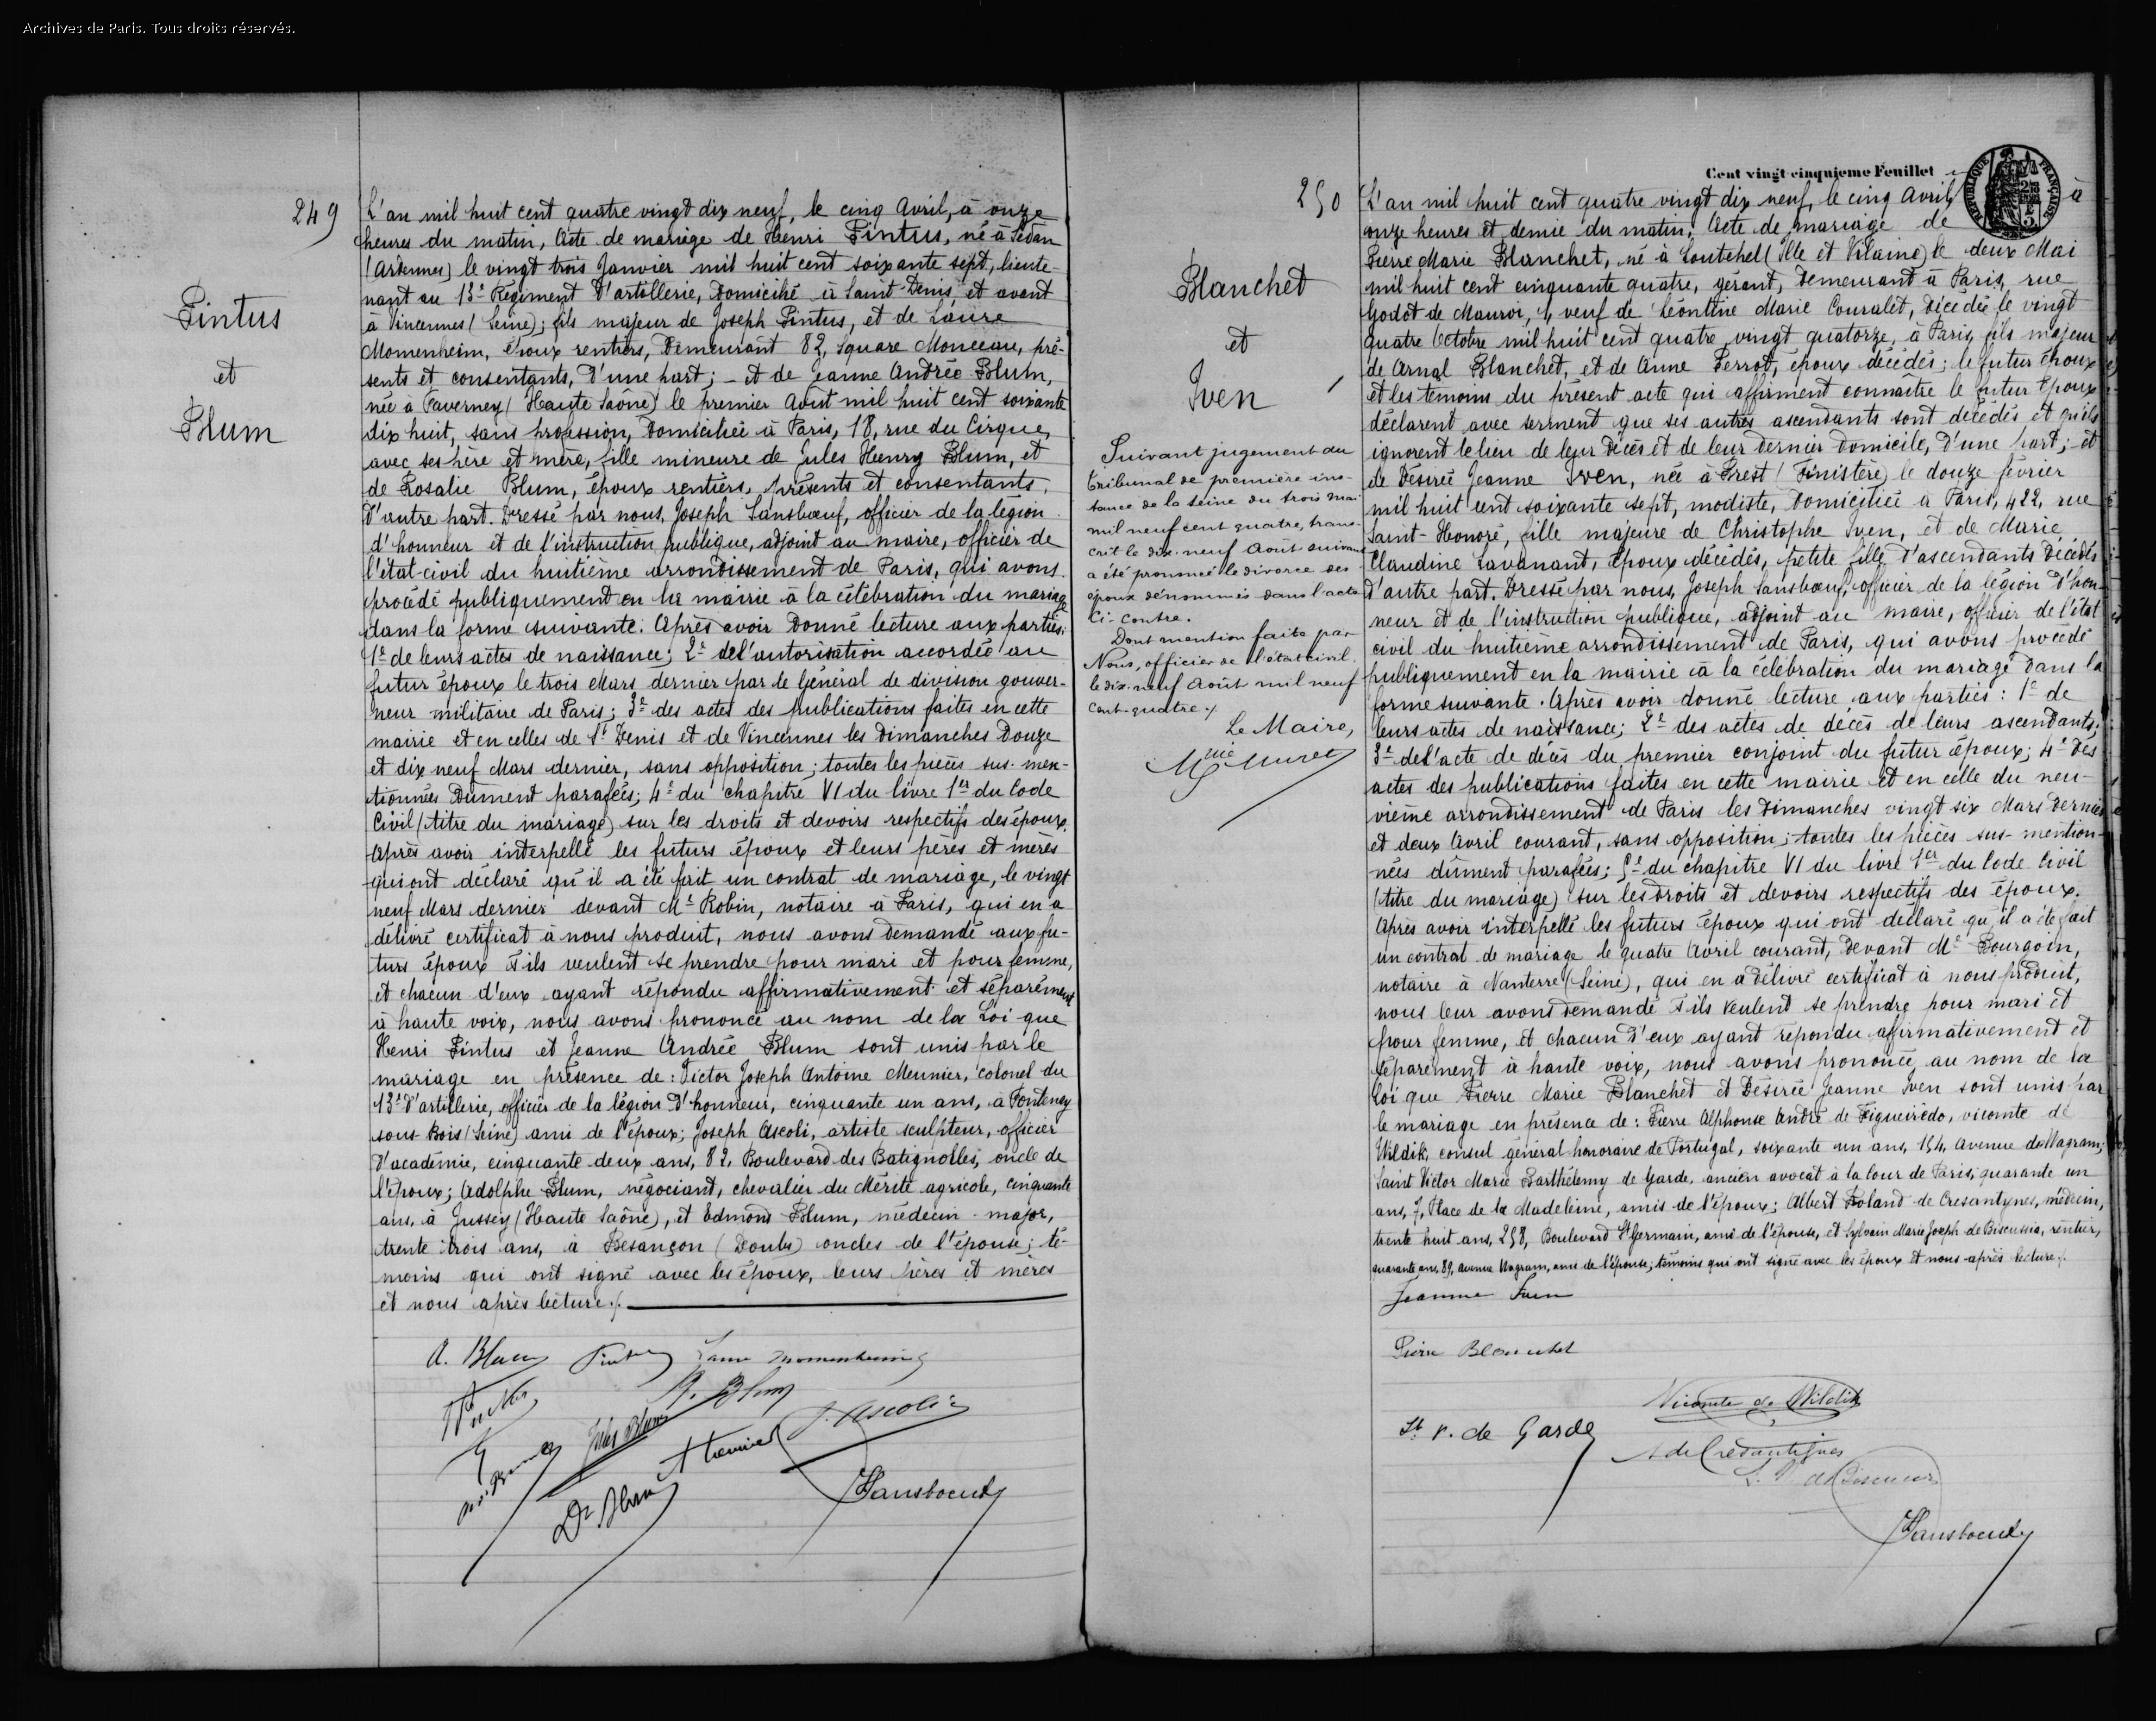 Archives de Paris. Tous droits réservés.
249
Pintus
et
Blum
L'an mil huit cent quatre vingt dix neuf, le cinq Avril, à onze
heures du matin, Acte de mariage de Henri Pintus, né à Sedan
(Ardennes) le vingt trois Janvier mil huit cent soixante sept, lieute-
nant au 13e Régiment d'artillerie, domicilié à Saint-Denis, et avant
à Vincennes (Seine); fils majeur de Joseph Pintus, et de Laure
Momenheim, époux rentiers, demeurant 82, Square Monceau, pré-
sents et consentants, d'une part; - et de Jeanne Andrée Blum,
née à Faverney (Haute Saône) le premier Août mil huit cent soixante
dix huit, sans profession, domiciliée à Paris, 18, rue du Cirque,
avec ses père et mère, fille mineure de Jules Henry Blum, et
de Rosalie Blum, époux rentiers, présents et consentants,
d'autre part. Dressé par nous, Joseph Sansboeuf, officier de la légion
d'honneur et de l'instruction publique, adjoint au maire, officier de
l'état-civil du huitième arrondissement de Paris, qui avons
procédé publiquement en la mairie à la célébration du mariage
dans la forme suivante: Après avoir donné lecture aux parties:
1e de leurs actes de naissance; 2e de l'autorisation accordée au
futur époux le trois Mars dernier par le Général de division gouver-
neur militaire de Paris; 3e des actes des publications faites en cette
mairie et en celles de St Denis et de Vincennes les Dimanches Douze
et dix neuf Mars dernier, sans opposition; toutes les pièces sus-men-
tionnées dûment parafées; 4e du chapitre VI du livre 1er du Code
Civil (titre du mariage) sur les droits et devoirs respectifs des époux.
Après avoir interpellé les futurs époux et leurs pères et mères
qui ont déclaré qu'il a été fait un contrat de mariage, le vingt
neuf Mars dernier devant Me Robin, notaire à Paris, qui en a
délivré certificat à nous produit, nous avons demandé aux fu-
turs époux s'ils veulent se prendre pour mari et pour femme,
et chacun d'eux ayant répondu affirmativement et séparément
à haute voix, nous avons prononcé au nom de la Loi que
Henri Pintus et Jeanne Andrée Blum sont unis par le
mariage en présence de: Victor Joseph Antoine Meunier, colonel du
13e d'artillerie, officier de la légion d'honneur, cinquante un ans, à Fontenay
sous-Bois (Seine) ami de l'époux; Joseph Ascoli, artiste sculpteur, officier
d'académie, cinquante deux ans, 82, Boulevard des Batignolles, oncle de
l'époux; Adolphe Blum, négociant, chevalier du Mérite agricole, cinquante
ans, à Jussey (Haute Saône), et Edmond Blum, médecin-major,
trente trois ans, à Besançon (Doubs) oncles de l'épouse; té-
moins qui ont signé avec les époux, leurs pères et mères
et nous après lecture./.
A. Blum Pintus Laure Momenheim
R. Blum
J. Ascoli
Jules Blum
Dr Blum
Sansboeuf
Cent vingt-cinquième Feuillet
RÉPUBLIQUE FRANÇAISE
250
Blanchet
et
Iven
Suivant jugement du
tribunal de première ins-
tance de la Seine du trois mai
mil neuf cent quatre, trans-
crit le dix-neuf Août suivant
a été prononcé le divorce des
époux dénommés dans l'acte
ci-contre.
Dont mention faite par
Nous, officier de l'état civil.
le dix-neuf Août mil neuf
cent-quatre./.
Le Maire,
L'an mil huit cent quatre vingt dix neuf, le cinq Avril, à
onze heures et demie du matin, Acte de mariage de
Pierre Marie Blanchet, né à Loutehel (Ille et Vilaine) le deux Mai
mil huit cent cinquante quatre, gérant, demeurant à Paris, rue
Godot de Mauroi, 4, veuf de Léontine Marie Couralet, décédée le vingt
quatre Octobre mil huit cent quatre vingt quatorze, à Paris, fils majeur
de Arnal Blanchet, et de Anne Perrot, époux décédés; le futur époux
et les témoins du présent acte qui affirment connaître le futur époux
déclarent avec serment que ses autres ascendants sont décédés et qu'ils
ignorent le lieu de leur décès et de leur dernier domicile, d'une part; et
de Désirée Jeanne Iven, née à Brest (Finistère) le douze février
mil huit cent soixante sept, modiste, domiciliée à Paris, 422, rue
Saint-Honoré, fille majeure de Christophe Iven, et de Marie
Claudine Lavanant, époux décédés, petite fille d'ascendants décédés
d'autre part. Dressé par nous, Joseph Sansboeuf, officier de la légion d'hon-
neur et de l'instruction publique, adjoint au maire, officier de l'état
civil du huitième arrondissement de Paris, qui avons procédé
publiquement en la mairie à la célébration du mariage dans la
forme suivante. Après avoir donné lecture aux parties: 1e de
leurs actes de naissance; 2e des actes de décès de leurs ascendants;
3e de l'acte de décès du premier conjoint du futur époux; 4e des
actes des publications faites en cette mairie et en celle du neu-
vième arrondissement de Paris les Dimanches vingt six Mars dernier
et deux Avril courant, sans opposition; toutes les pièces sus-mention-
nées dûment parafées; 5e du chapitre VI du livre 1er du Code Civil
(titre du mariage) sur les droits et devoirs respectifs des époux.
Après avoir interpellé les futurs époux qui ont déclaré qu'il a été fait
un contrat de mariage le quatre Avril courant, devant Me Bourgoin,
notaire à Nanterre (Seine), qui en a délivré certificat à nous produit,
nous leur avons demandé s'ils veulent se prendre pour mari et
pour femme, et chacun d'eux ayant répondu affirmativement et
séparément à haute voix, nous avons prononcé au nom de la
Loi que Pierre Marie Blanchet et Désirée Jeanne Iven sont unis par
le mariage en présence de: Pierre Alphonse André de Figueirédo, vicomte de
Wildik, consul général honoraire de Portugal, soixante un ans, 154, avenue de Wagram;
Saint Victor Marie Barthélemy de Garde, ancien avocat à la Cour de Paris, quarante un
ans, 7, Place de la Madeleine, amis de l'époux; Albert Roland de Cresantynes, médecin,
trente huit ans, 258, Boulevard St Germain, ami de l'épouse, et Sylvain Marie Joseph de Biscussia, rentier,
quarante ans, 89, avenue Wagram, ami de l'épouse; témoins qui ont signé avec les époux et nous après lecture./.
Jeanne Iven
Pierre Blanchet
Vicomte de Wildik
St V. de Garde
Sansboeuf